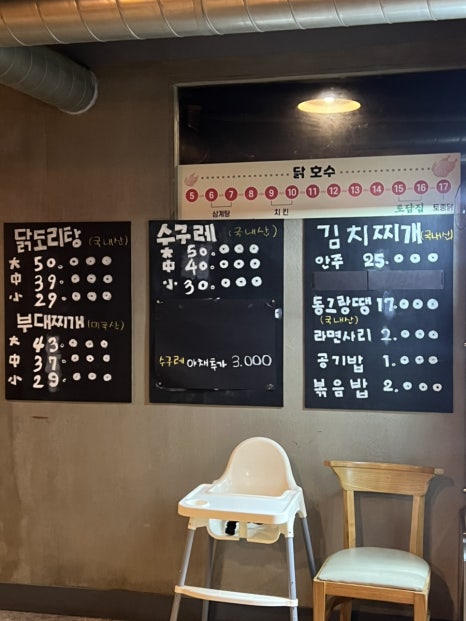 닭 호수
5 6 7 8 9 10 11 12 13 14 15 16 17
삼계탕 치킨 토담집 토종닭
닭도리탕 (국내산)
大 50.000
中 39.000
小 29.000
부대찌개 (미국산)
大 43.000
中 37.000
小 29.000
수구레 (국내산)
大 50.000
中 40.000
小 30.000
수구레 야채추가 3.000
김치찌개 (국내산)
안주 25.000
동그랑땡 17.000
(국내산)
라면사리 2.000
공기밥 1.000
볶음밥 2.000